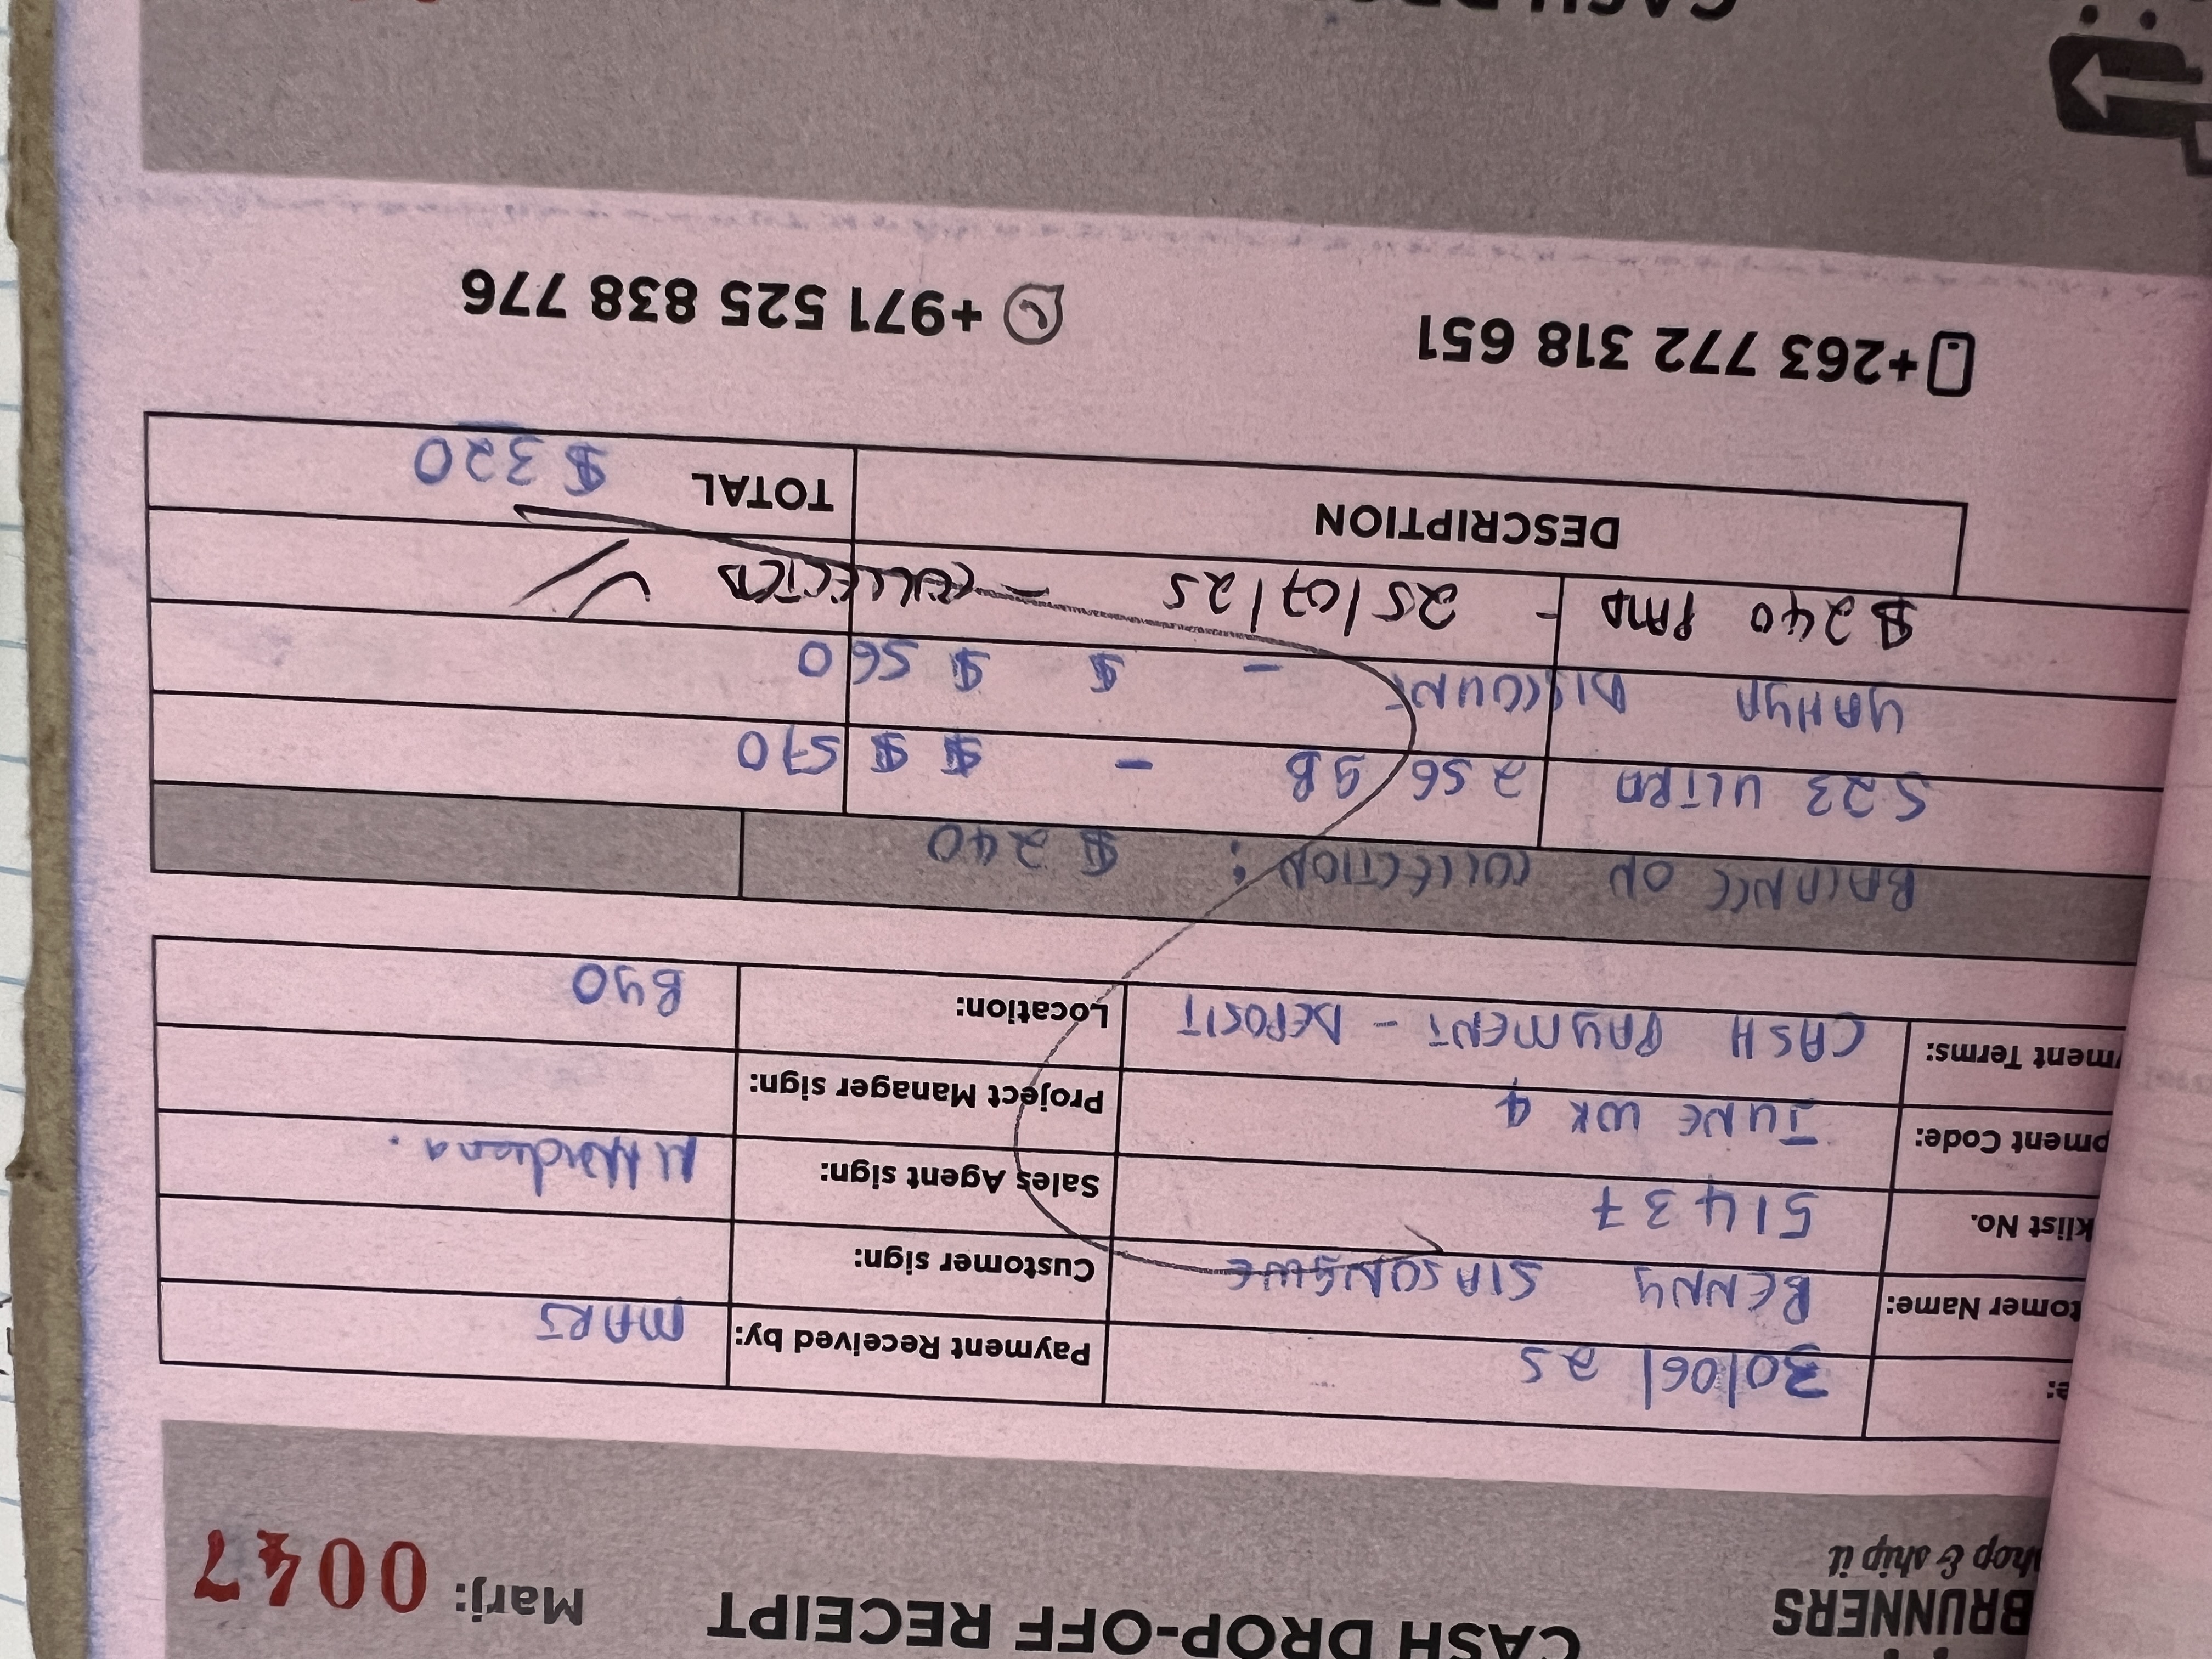 BRUNNERS
hop & ship it
CASH DROP-OFF RECEIPT
Marj: 0047
e: 30/06/25 Payment Received by: MARJ
tomer Name: BENNY SIASONGWE Customer sign:
klist No. 51437 Sales Agent sign:
pment Code: JUNE WK 4 Project Manager sign:
ment Terms: CASH PAYMENT - DEPOSIT Location: BYO
BALANCE ON COLLECTION: $240
S23 ULTRA 256 GB - $ $ $ 570
YAHYA DISCOUNT - $ $ 560
$240 PAID - 25/07/25 - COLLECTED
DESCRIPTION TOTAL $320
+263 772 318 651 +971 525 838 776